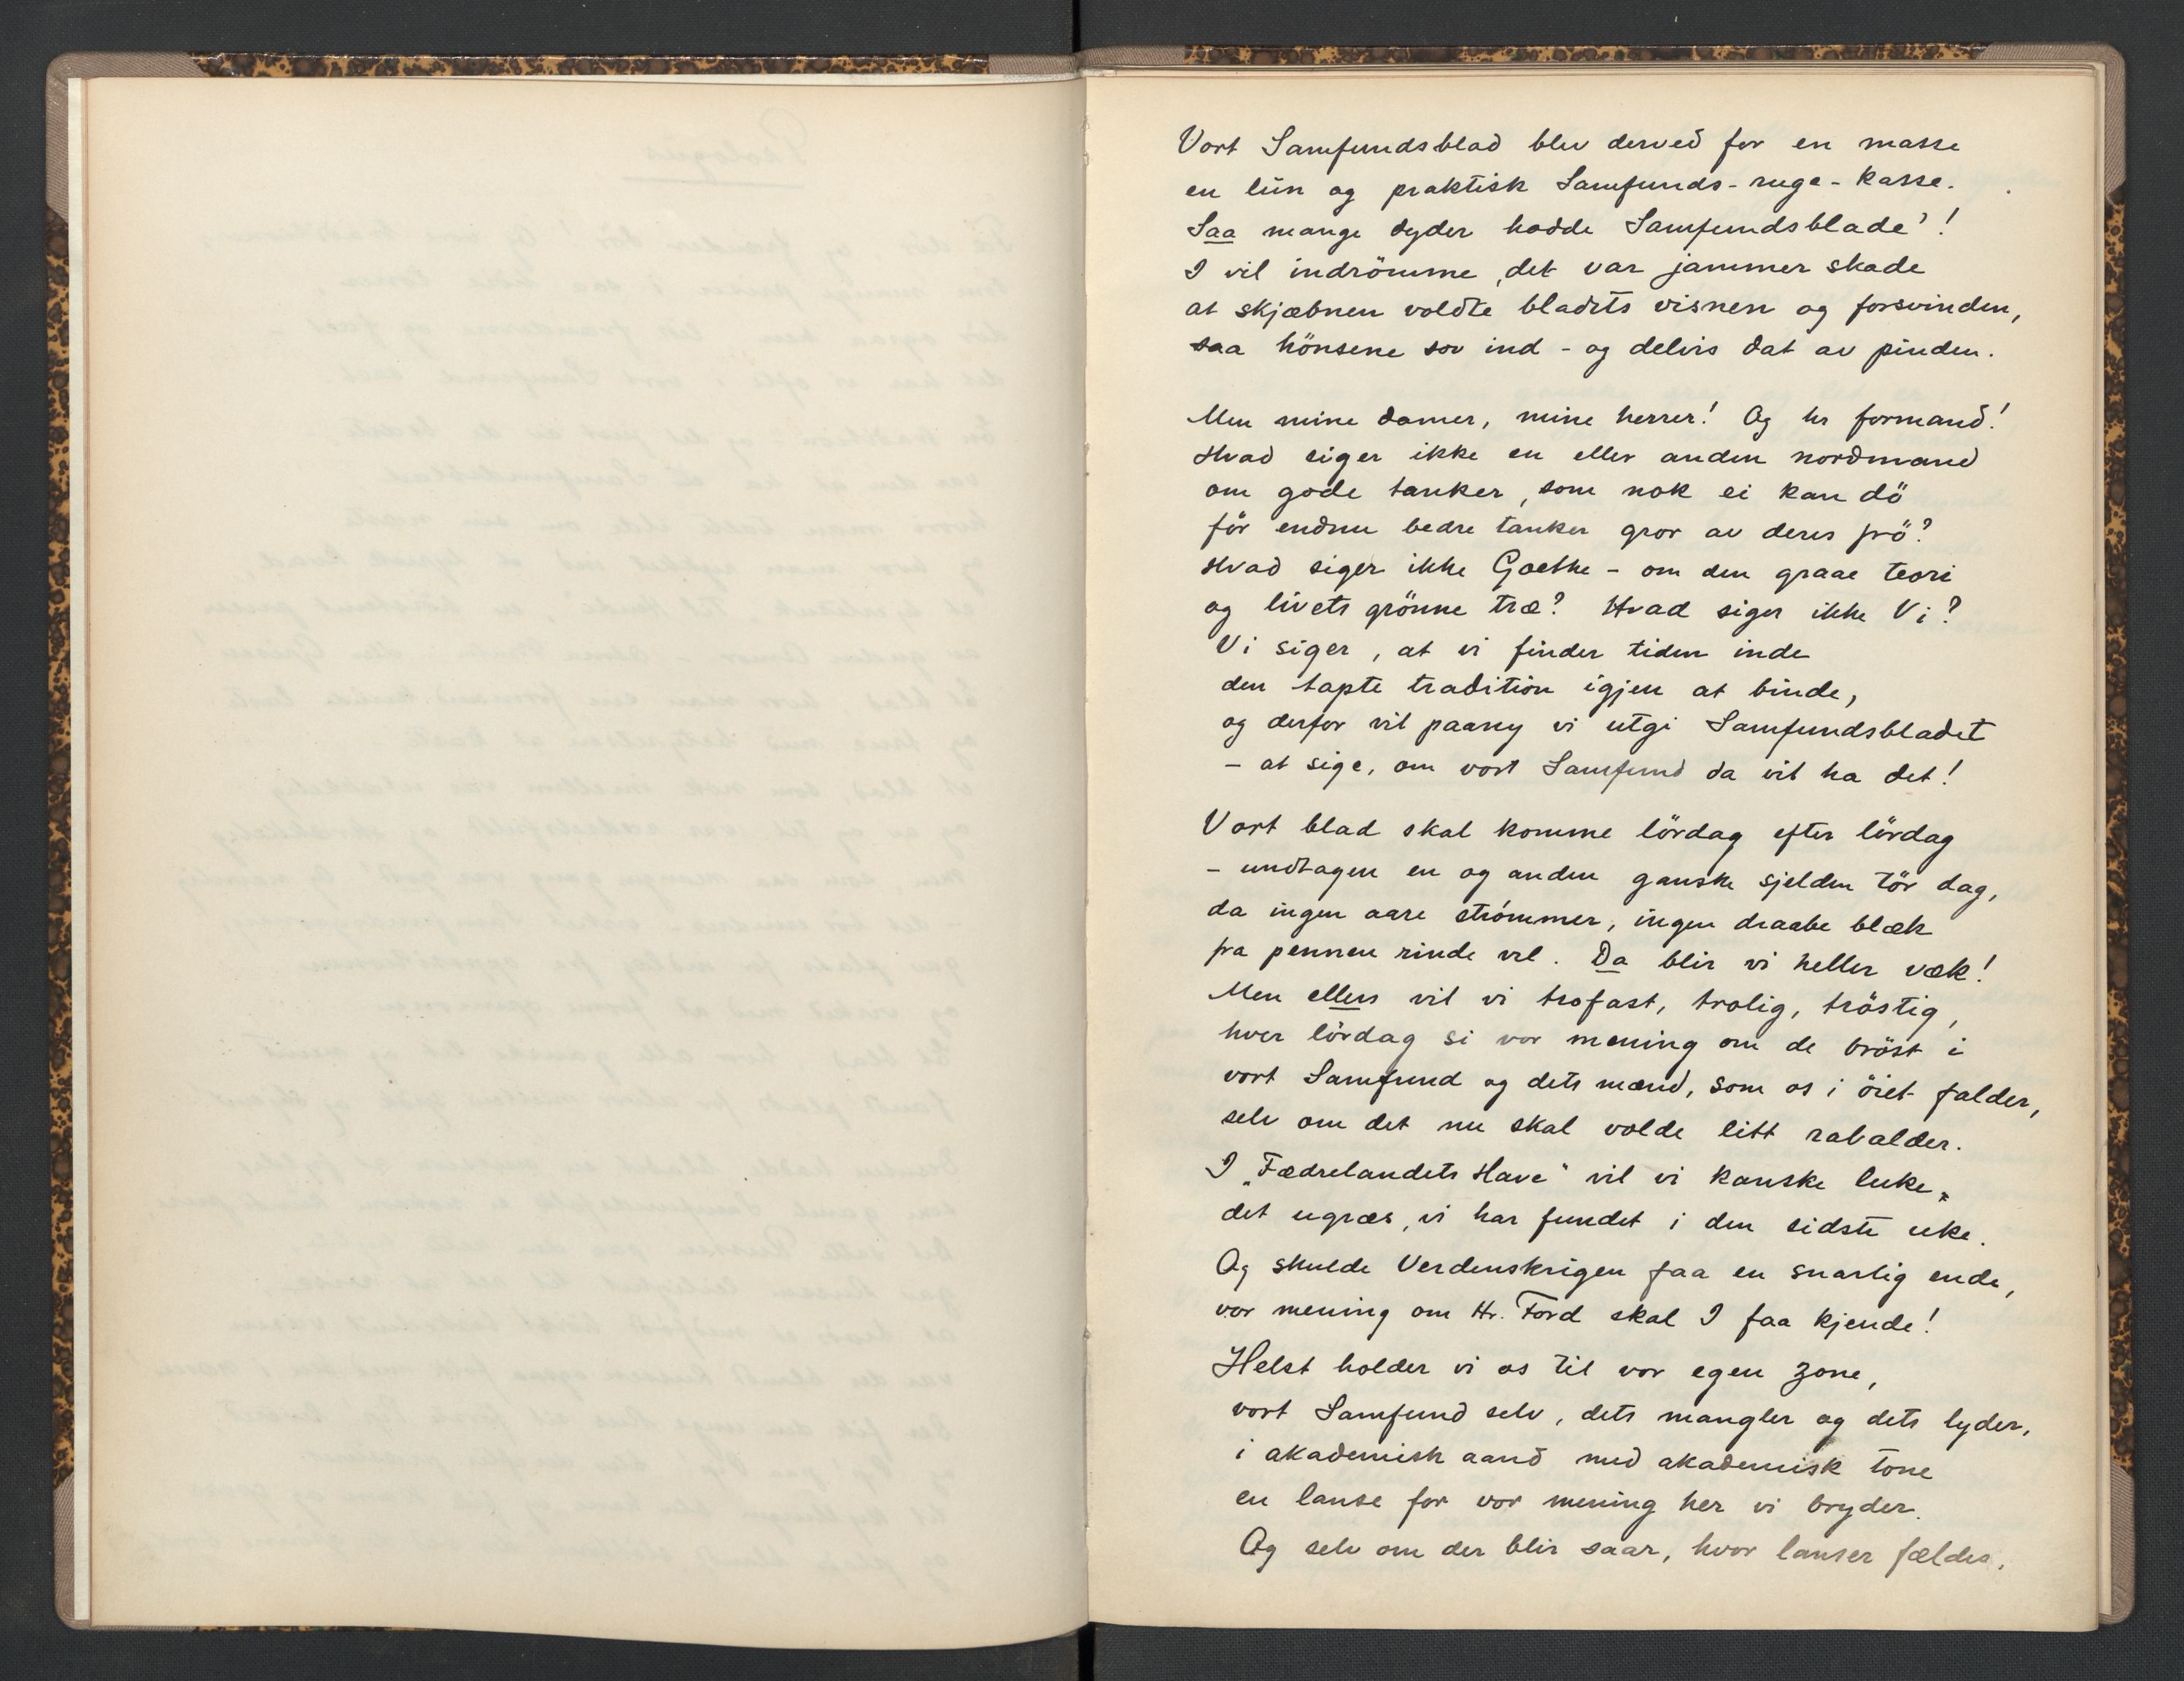 Vort Samfundsblad blev derved for en masse
en lun og praktisk Samfunds-ruge-kasse.
Saa mange dyder hadde Samfundsblade'!
I vil indrömme, det var jammer skade
at skjæbnen voldte bladets visnen og forsvinden,
saa hönsene sov ind - og delvis dat av pinden.
Men mine damer, mine herrer! Og hr formand!
Hvad siger ikke en eller anden nordmand
om gode tanker, som nok ei kan dö
för endnu bedre tanker gror av deres frö?
Hvad siger ikke Goethe - om den graae teori
og livets grönne træ? Hvad siger ikke Vi?
Vi siger, at vi finder tiden inde
den tapte tradition igjen at binde,
og derfor vil paany vi utgi Samfundsbladet
- at sige, om vort Samfund da vil ha det!
Vort blad skal komme lördag efter lördag
- undtagen en og anden ganske sjelden tör dag,
da ingen aare strömmer, ingen draabe blæk
fra pennen rinde vil. Da blir vi heller væk!
Men ellers vil vi trofast, trolig, tröstig,
hver lördag si vor mening om de bröst i
vort Samfund og dets mænd, som os i öiet falder,
selv om det nu skal volde litt rabalder.
I „Fædrelandets Have" vil vi kanske luke
det ugræs, vi har fundet i den sidste uke.
Og skulde Verdenskrigen faa en snarlig ende,
vor mening om Hr. Ford skal I faa kjende!
Helst holder vi os til vor egen zone,
vort Samfund selv, dets mangler og dets lyder,
i akademisk aand med akademisk tone
en lanse for vor mening her vi bryder.
Og selv om der blir saar, hvor lanser fældes,